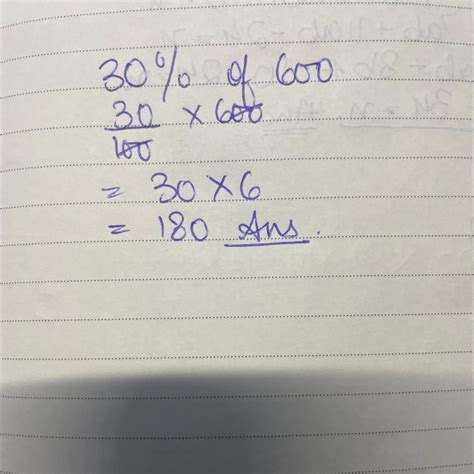 30% of 600
30/100 × 600
= 30 × 6
= 180 Ans.